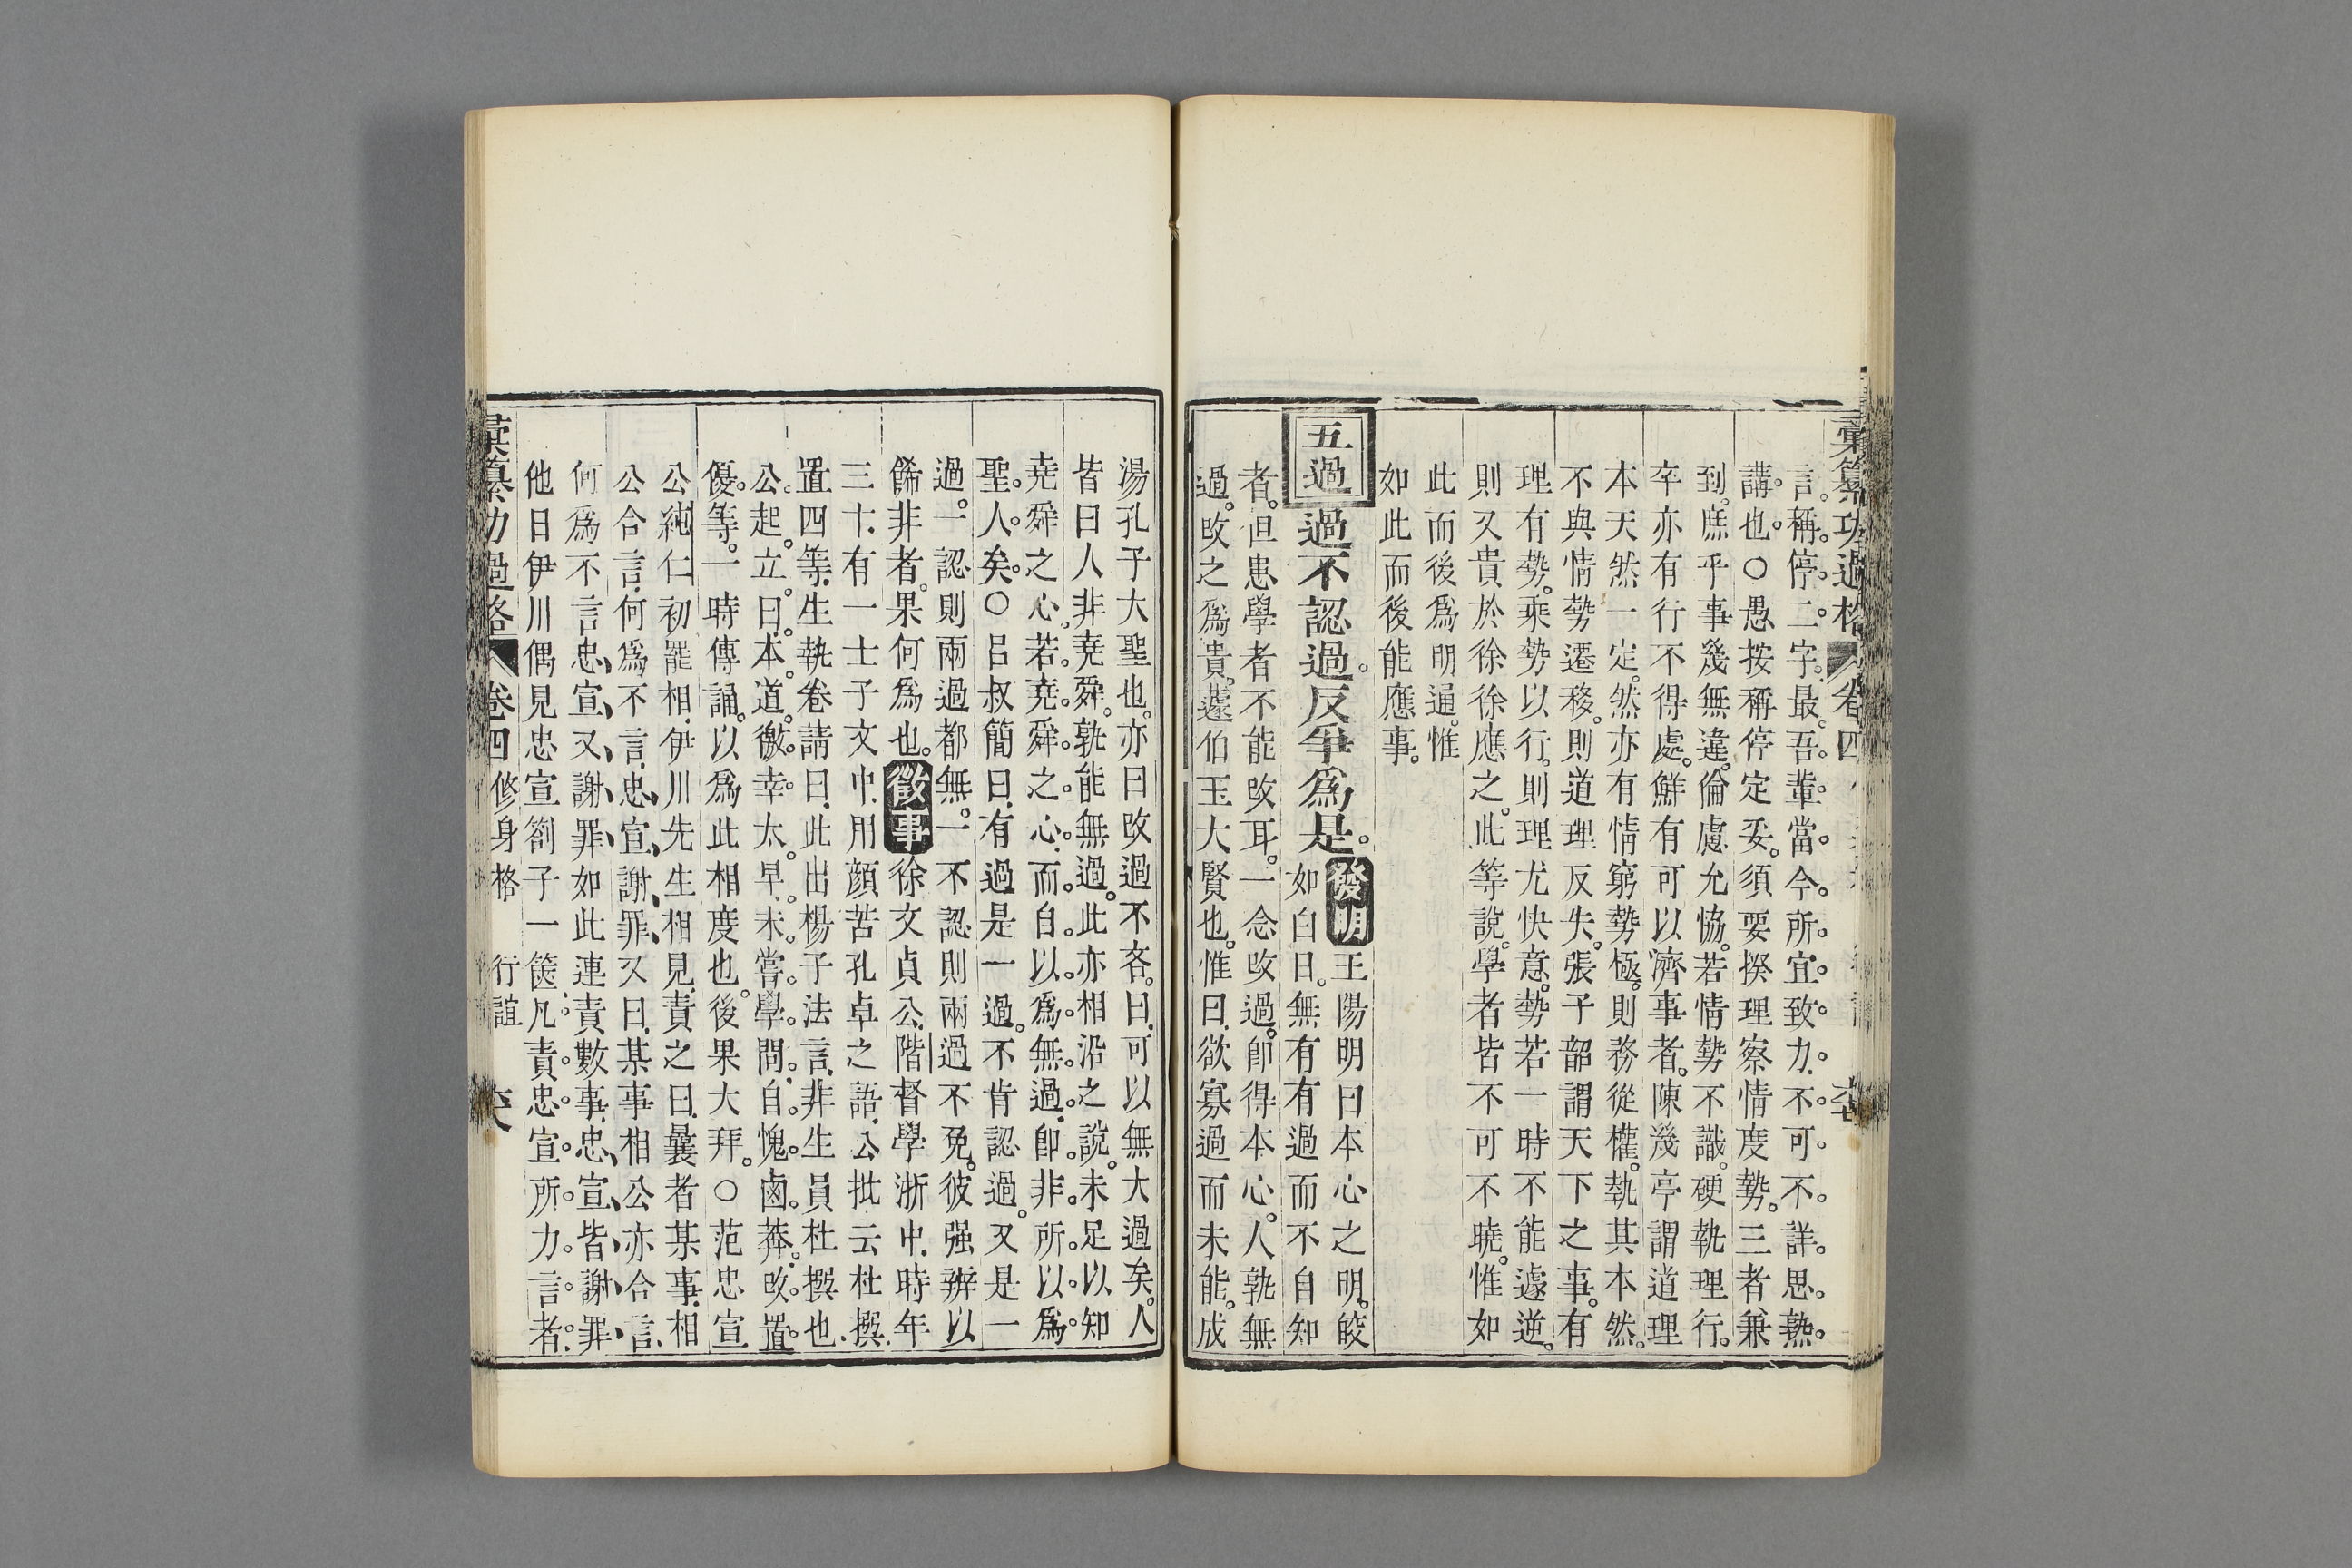 彙纂功過格 卷四
言。稱。停。二。字。最。吾。輩。當。今。所。宜。致。力。不。可。不。詳。思。熟。
講。也。○愚按稱停定妥。須要揆理察情度勢。三者兼
到。庶乎事幾無違。倫慮允協。若情勢不識。硬執理行。
卒亦有行不得處。鮮有可以濟事者。陳幾亭謂道理
本天然一定。然亦有情窮勢極。則務從權。執其本然。
不與情勢遷移。則道理反失。張子韶謂天下之事。有
理有勢。乘勢以行。則理尤快意。勢若一時不能遽逆。
則又貴於徐徐應之。此等說。學者皆不可不曉。惟如
此而後爲明通。惟
如此而後能應事。
五過 過不認過。反爭爲是。 發明 王陽明曰本心之明。皎
如白日。無有有過而不自知
者。但患學者不能改耳。一念改過。卽得本心。人孰無
過。改之爲貴。蘧伯玉大賢也。惟曰。欲寡過而未能。成
湯孔子大聖也。亦曰改過不吝。曰。可以無大過矣。人
皆曰人非堯舜。孰能無過。此亦相沿之說。未足以知
堯舜之心。若。堯。舜。之。心。而。自。以。爲。無。過。卽。非。所。以。爲。
聖。人。矣。○呂叔簡曰。有過是一過。不肯認過。又是一
過。一認則兩過都無。一不認則兩過不免。彼强辨以
餙非者。果何爲也。 徵事 徐文貞公階督學浙中。時年
三十。有一士子文中。用顏苦孔卓之語。公批云杜撰。
置四等。生執卷請曰。此出楊子法言。非生員杜撰也。
公。起。立。曰。本。道。徼。幸。太。早。未。嘗。學。問。自。愧。鹵。莽。改。置。
優。等。一時傳誦。以爲此相度也。後果大拜。○范忠宣
公純仁初罷相。伊川先生相見。責之曰。曩者某事。相
公合言。何爲不言。忠宣謝罪。又曰。某事相公亦合言。
何爲不言。忠宣又謝罪。如此連責數事。忠宣皆謝罪。
他日伊川偶見忠宣劄子一篋。凡。責。忠。宣。所。力。言。者。
彙纂功過格 卷四 修身格 行誼 六